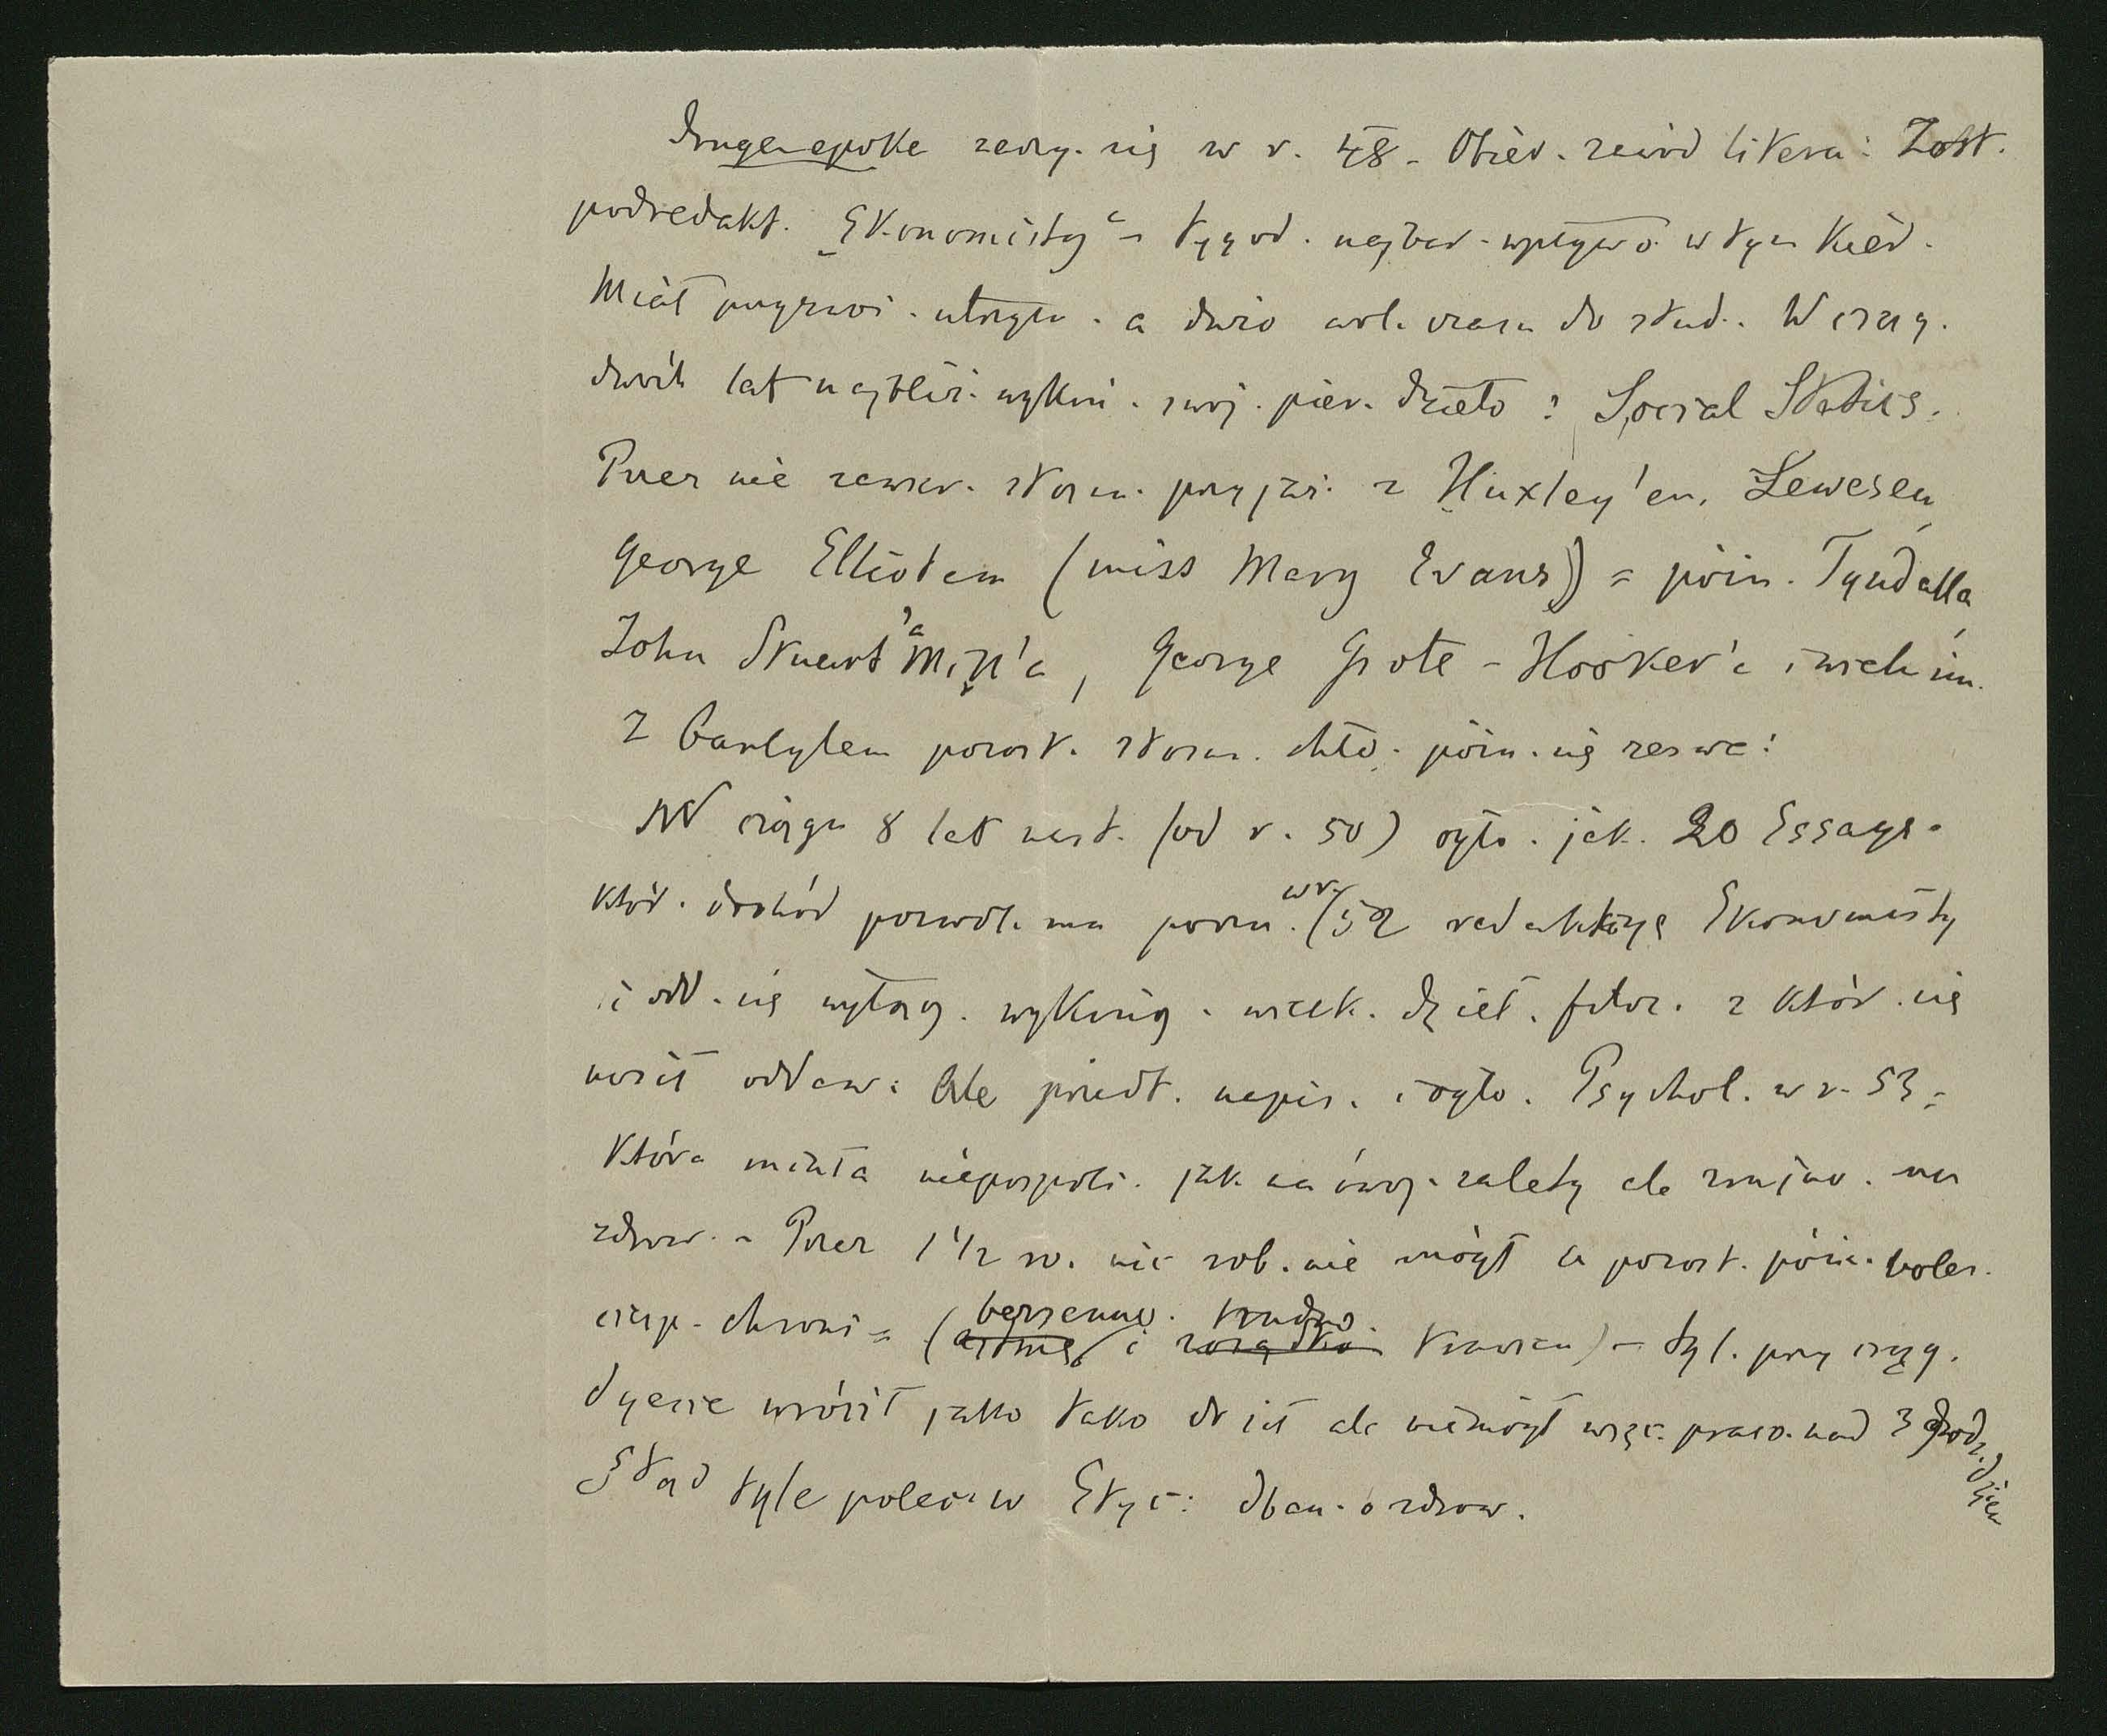 Druga epoka zaczy. się w r. 48 - Obier. zawód litera: Zost.
podredakt. „Ekonomisty“ - tygod. najbar. wpływo. w tym kier.
Miał przyzwoi. utrzym. a dużo wol. czasu do stud. W ciąg.
dwóch lat najbliż. wykoń. swoj. pier. dzieło: Social Statics.
Przez nie zawier. stosun. przyjaź. z Huxley'em, Lewesem,
George Elliotem (miss Mary Evans) = póżn. Tyndalla,
John Stuart Mill'a, George Grote - Hooker'a i wielu in.
Z Carlylem pozost. stosun. chło. póżn. się zerwa:
W ciągu 8 lat nast. (od r. 50) ogło. jak. 20 Essays.
któr. dochód pozwol. mu porzu. w r. 52 redakcyę Ekonomisty
i odd. się wyłącz. wykoń. wielk. dzieł. filoz. z któr. się
nosił oddaw: Ale przedt. napis. i ogło. Psychol. w r. 53 =
która miała niepospoli. jak na ówcz. zalety ale rujno. mu
zdrow. - Przez 1 1/2 ro. nic rob. nie mógł a pozost. póżn. boleś.
cierp. chroni = (bezsenno. i trudno. trawien) - tyl. przy ciąg.
dyecie wrócił jako tako do sił ale nie mógł więc. praco. nad 3 godz. dzien
Stąd tyle poleceń w Etyc: dban. o zdrow.